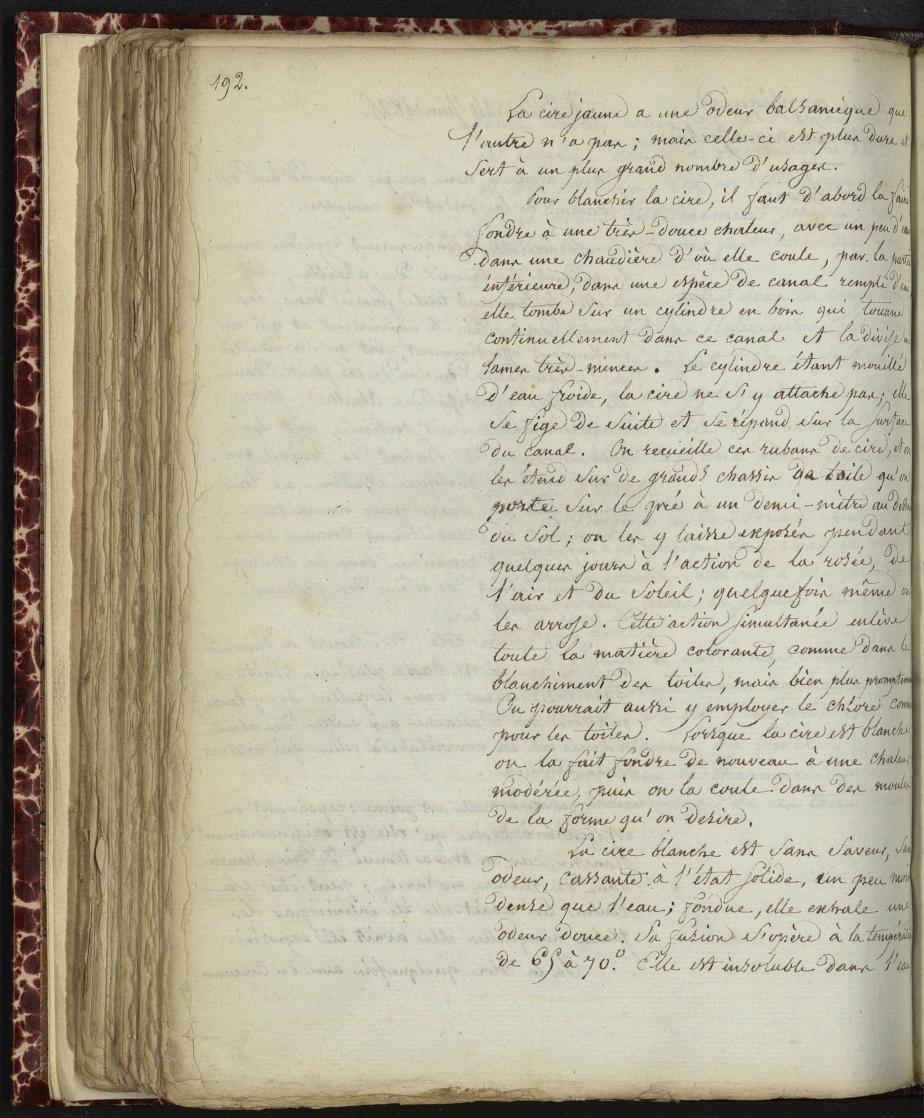 192.
La cire jaune a une odeur balsamique que
l'autre n'a pas ; mais celle-ci est plus dure et
sert à un plus grand nombre d'usages.
Pour blanchir la cire, il faut d'abord la faire
fondre à une très-douce chaleur, avec un peu d'eau
dans une chaudière d'où elle coule, par la partie
intérieure, dans une espèce de canal remple d'eau
elle tombe sur un cylindre en bois qui tourne
continuellement dans ce canal et la divise en
lames très-minces. Le cylindre étant mouillé
d'eau froide, la cire ne s'y attache pas ; elle
se fige de suite et se répand sur la surface
du canal. On recueille ces rubans de cire, et on
les étend sur de grands chassis de toile qu'on
porte sur le pré à un demi-mètre au dessus
du sol ; on les y laisse exposés pendant
quelques jours à l'action de la rosée, de
l'air et du soleil ; quelquefois même on
les arrose. Cette action simultanée enlève
toute la matière colorante, comme dans le
blanchiment des toiles, mais bien plus promptem
On pourrait aussi y employer le chlore comme
pour les toiles. Lorsque la cire est blanche
on la fait fondre de nouveau à une chaleur
modérée, puis on la coule dans des moules
de la forme qu'on desire.
La cire blanche est sans saveur, sans
odeur, cassante à l'état solide, un peu moins
dense que l'eau ; fondue, elle exhale une
odeur douce. Sa fusion s'opère à la températu
de 65 à 70.° Elle est insoluble dans l'eau